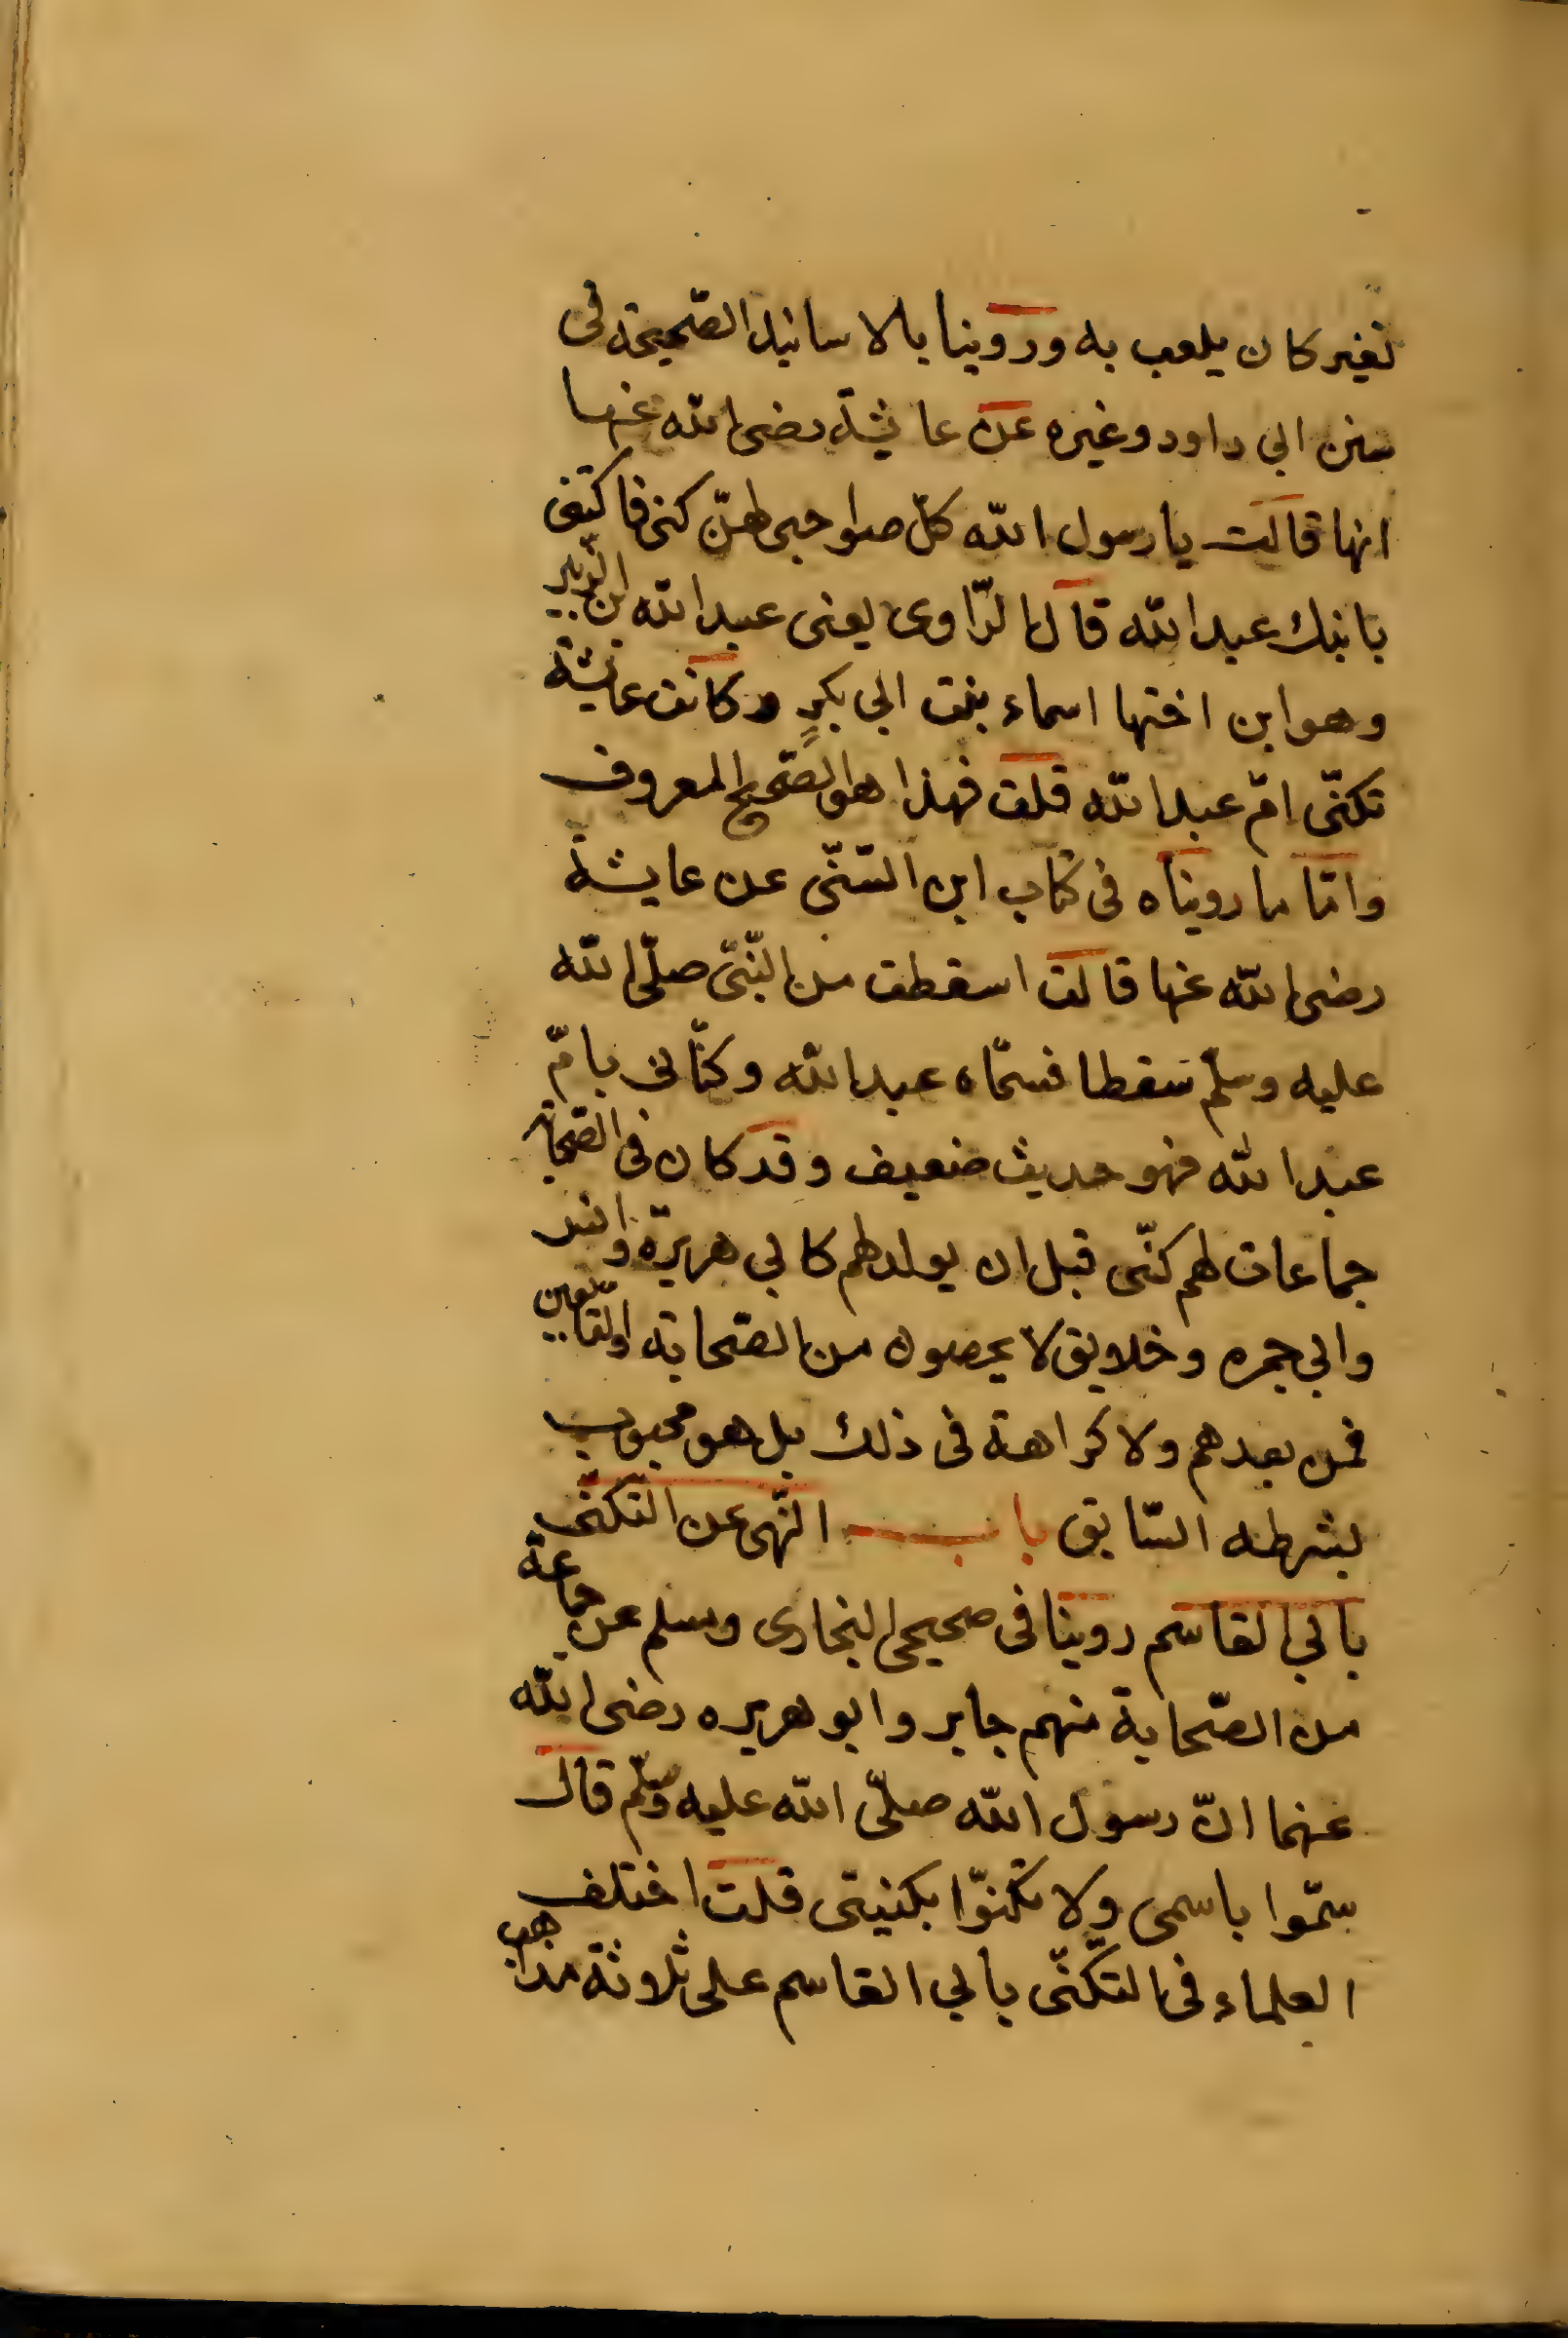 نغير كان يلعب به وروينا بالاسانيد الصّحيحة فى
سنن ابي داود وغيره عن عائشة رضى الله عنها
انها قالت يا رسول الله كلّ صواحبى لهنّ كنى فاكتفى
بابنك عبد الله قال الرّاوى يعنى عبد الله ابن الزّبير
وهو ابن اختها اسماء بنت ابي بكرٍ وكانت عائشة
تكنّى امّ عبد الله قلت فهذا هو الصّحيح المعروف
وامّا ما رويناه فى كتاب ابن السّنّى عن عايشة
رضى الله عنها قالت اسقطت من النّبىّ صلّى الله
عليه وسلّم سَقطا فسمّاه عبد الله وكنّانى بامّ
عبد الله فهو حديث ضعيف وقد كان فى الصّحابة
جماعات لهم كنّى قبل ان يولد لهم كابي هريرة وانس
وابي حمزه وخلايق لا يحصون من الصّحابة والتّابعين
فمن بعدهم ولا كراهة فى ذلك بل هو محبوب
بشرطه السّابق باب النّهى عن التّكنّى
بابي القاسم روينا فى صحيحى البخارى ومسلم عن جماعة
من الصّحابة منهم جابر وابو هريره رضى الله
عنهما انّ رسول الله صلّى الله عليه وسلّم قال
سمّوا باسمى ولا تكنوّا بكنيتى قلت اختلف
العلماء فى التّكنّى بابي القاسم على ثلاوثة مذاهب